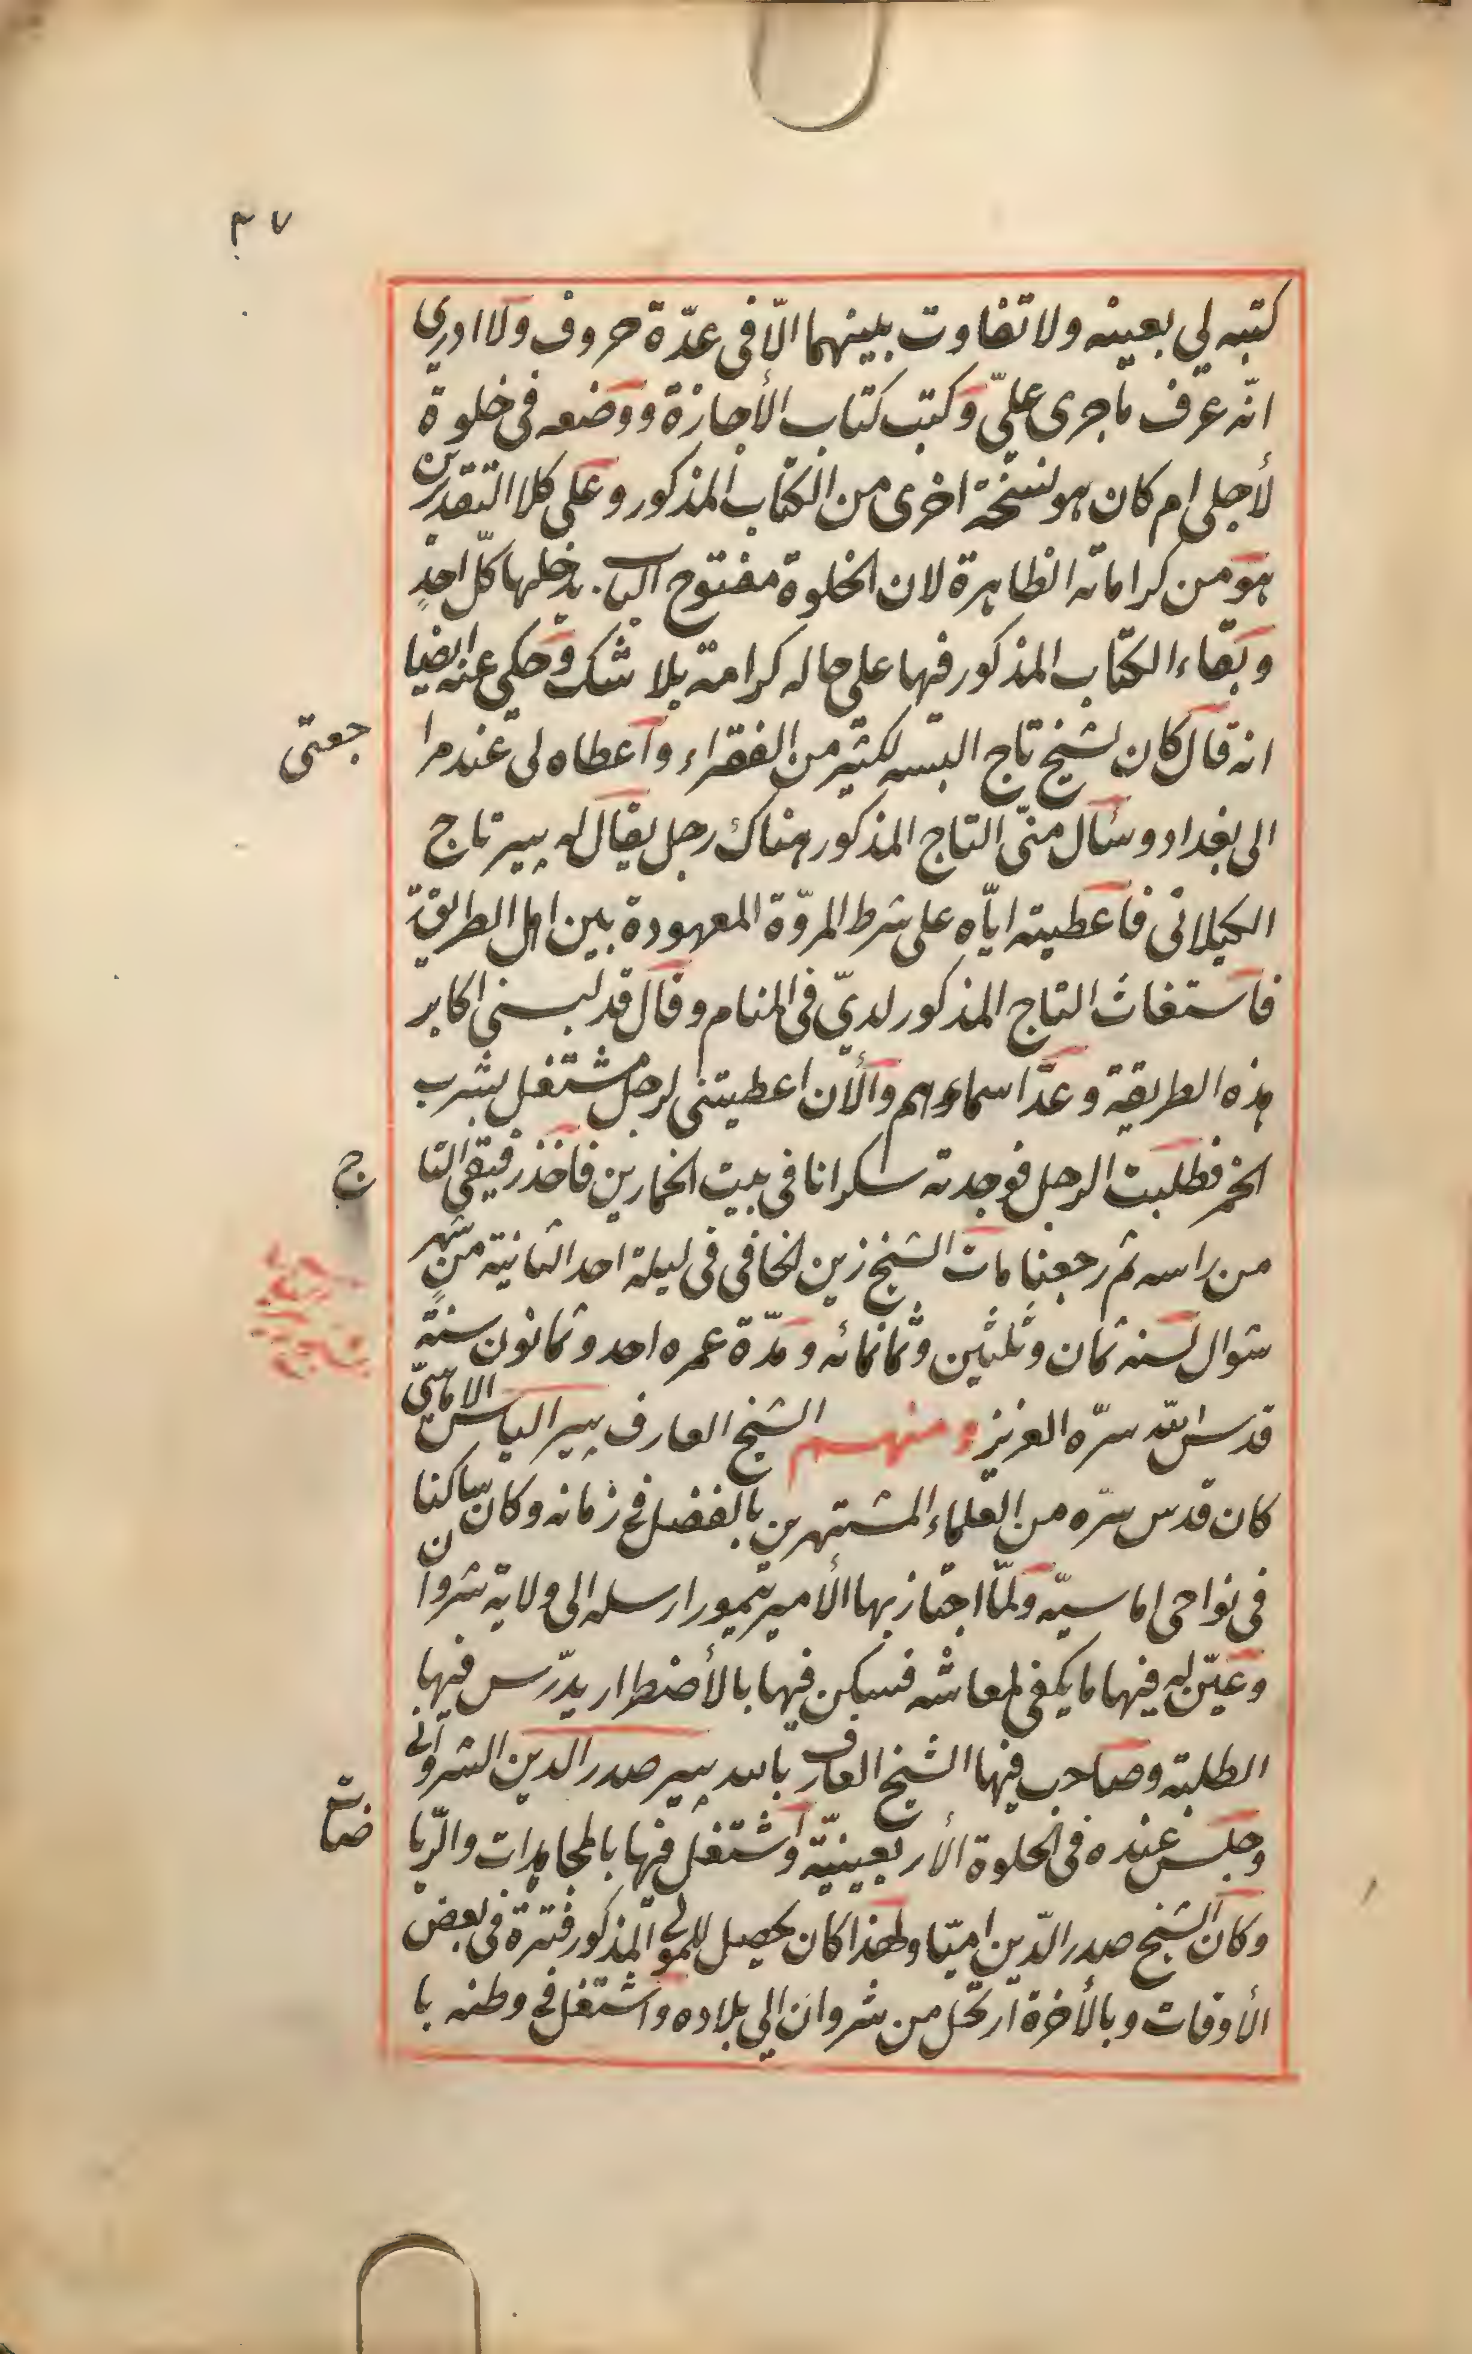 ٣٧
كتبه لي بعينه ولا تفاوت بينهما الّا في عدّة حروف ولا ادري
انّه عرف ما جرى عليّ وكتب كتاب الأجازة ووضعه في خلوة
لأجلي ام كان هو نسخة اخرى من الكتاب المذكور وعلى كلا التقديرين
هو من كراماته الظاهرة لان الخلوة مفتوح الباب يدخلها كلّ احدٍ
وبقاء الكتاب المذكور فيها على حاله كرامة بلا شك وحكى عنه ايضا
انه قال كان لشيخ تاج البسه لكثير من الفقراء واعطاه لي عند مرا
جعتى
الى بغداد وسأل منّي التاج المذكور هناك رجل يقال له پير تاج
الكيلاني فاعطيته ايّاه على شرط المروّة المعهودة بين اهل الطريقة
فاستغاث التاج المذكور لديّ في المنام وقال قد لبسني اكابر
هذه الطريقة وعدّ اسماءهم والأن اعطيتني لرجل مشتغل بشرب
الخمر فطلبت الرجل فوجدته سكرانا في بيت الخمارين فاخذ رفيقي التا
ج
من راسه ثم رجعنا مات الشيخ زين الخافي في ليلة احد الثانية من شهر
شوال لسنه ثمان وثلثين وثمانمائه ومدّة عمره احد وثمانون سنة
قدس الله سرّه العزيز ومنهم الشيخ العارف پير الياس الاماسيّ
كان قدس سرّه من العلماء المشتهرين بالفضل في زمانه وكان ساكنا
في نواحي اماسيّه ولمّا اجتاز بها الأمير تيمور ارسله الى ولاية شروان
وعيّن له فيها ما يكفي لمعاشه فسكن فيها بالأضطرار يدرّس فيها
الطلبة وصاحب فيها الشيخ العارف بالله پير صدر الدين الشرواني
وجلس عنده في الخلوة الأربعينيّة واشتغل فيها بالمجاهدات والريا
ضات
وكان الشيخ صدر الدّين اميّا ولهذا كان يحصل للمولى المذكور فترة في بعض
الأوقات وبالأخرة ارتحل من شروان الى بلاده واشتغل في وطنه با